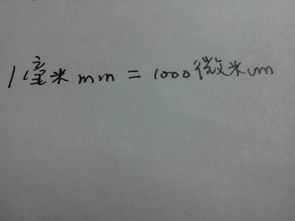 1毫米mm = 1000微米um